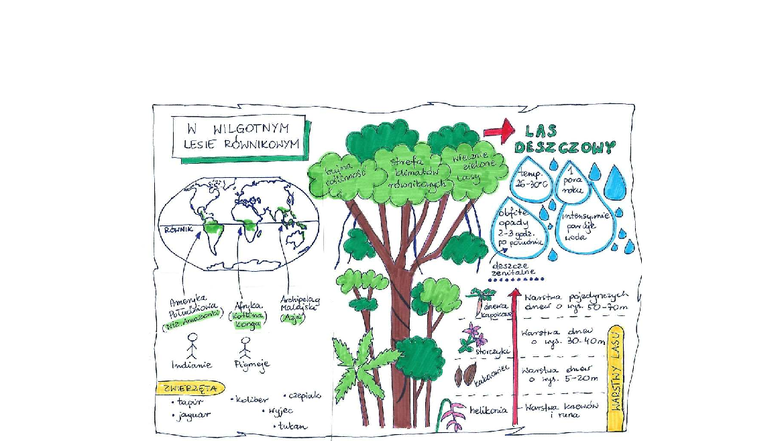 W WILGOTNYM
LESIE RÓWNIKOWYM
RÓWNIK
Ameryka
Południowa
(Niz. Amazonki)
Afryka
Kotlina
Konga
Archipelag
Malajski
(Azja)
Indianie
Pigmeje
ZWIERZĘTA
• tapir
• jaguar
• koliber
• wyjec
• tukan
• czepiak
bujna
roślinność
strefa
klimatów
równikowych
wiecznie
zielone
lasy
LAS
DESZCZOWY
temp.
26-30°C
1
pora
roku
obfite
opady
2-3 godz.
po południu
intensywnie
paruje
woda
deszcze
zenitalne
drzewa
kapokowe
storczyki
kakaowiec
helikonia
Warstwa pojedynczych
drzew o wys. 50-70m
Warstwa drzew
o wys. 30-40m
Warstwa drzew
o wys. 5-20m
Warstwa krzewów
i runa
WARSTWY LASU